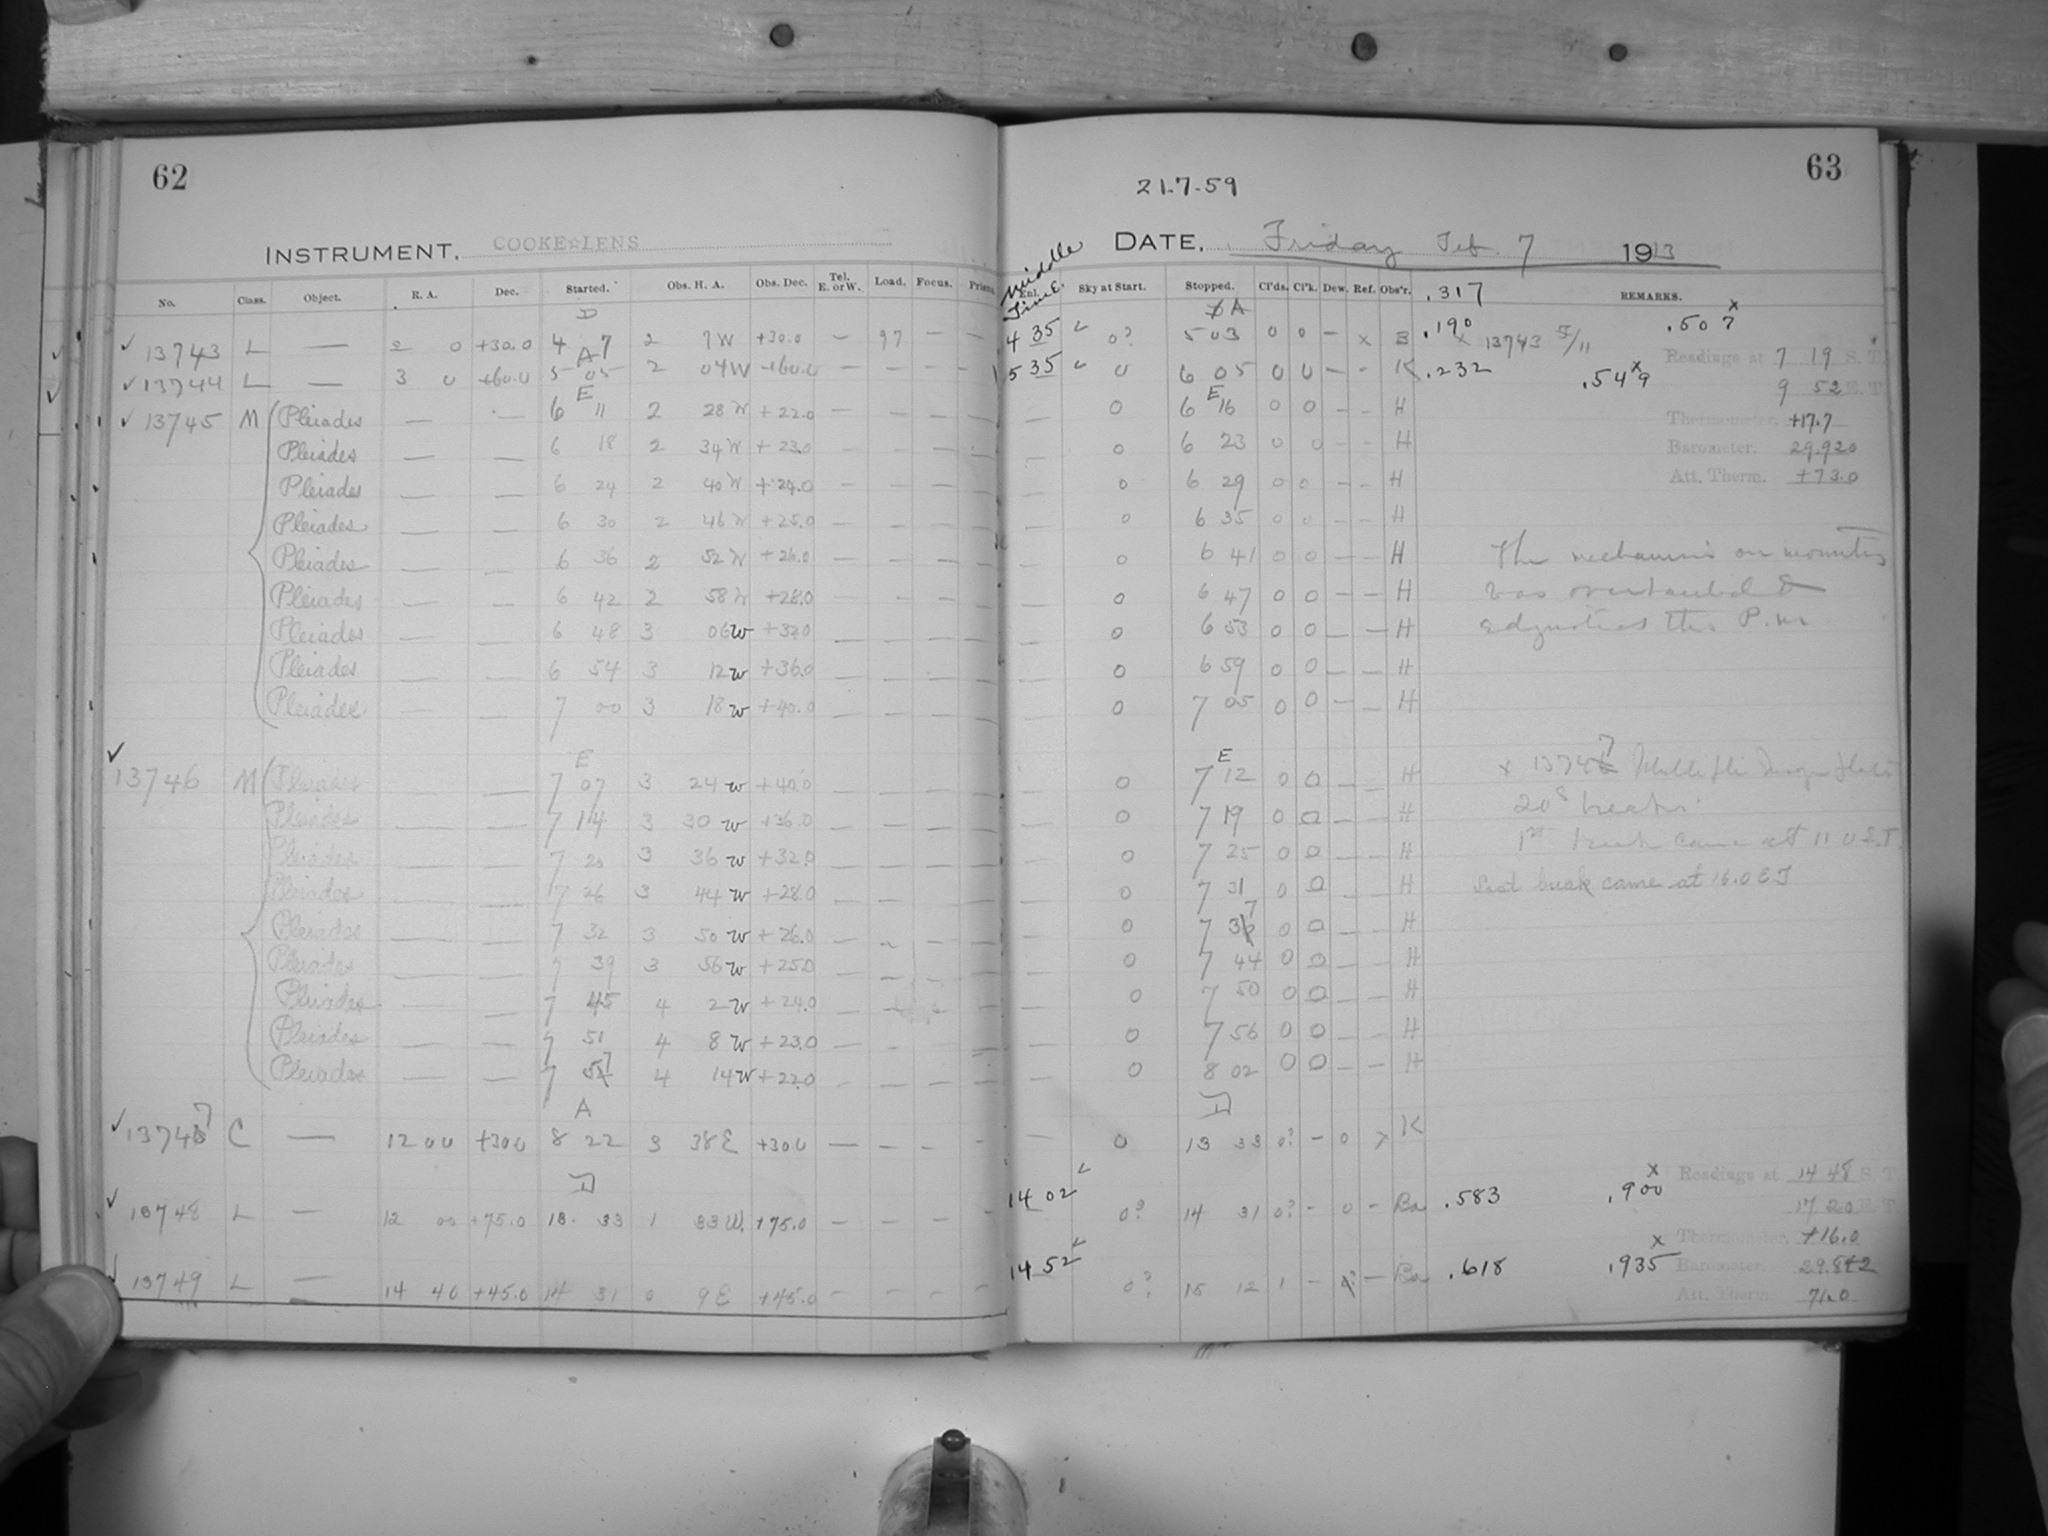 62
INSTRUMENT. COOKE☆LENS
No. Class. Object. R. A. Dec. Started. Obs. H. A. Obs. Dec. Tel. E. or W. Load. Focus. Prism.
D
✓ 13743 L — 2 0 +30.0 4 7 2 7W +30.0 — 97 — —
A
✓ 13744 L — 3 0 +60.0 5 05 2 04W +60.0 — — — —
E
✓ 13745 M Pleiades — — 6 11 2 28 W +22.0 — — — —
Pleiades — — 6 18 2 34 W +23.0 — — — —
Pleiades — — 6 24 2 40 W +24.0 — — — —
Pleiades — — 6 30 2 46 W +25.0 — — — —
Pleiades — — 6 36 2 52 W +26.0 — — — —
Pleiades — — 6 42 2 58 W +28.0 — — — —
Pleiades — — 6 48 3 06 W +32.0 — — — —
Pleiades — — 6 54 3 12 W +36.0 — — — —
Pleiades — — 7 00 3 18 W +40.0 — — — —
E
✓ 13746 M Pleiades — — 7 07 3 24 W +40.0 — — — —
Pleiades — — 7 14 3 30 W +36.0 — — — —
Pleiades — — 7 20 3 36 W +32.0 — — — —
Pleiades — — 7 26 3 44 W +28.0 — — — —
Pleiades — — 7 32 3 50 W +26.0 — — — —
Pleiades — — 7 39 3 56 W +25.0 — — — —
Pleiades — — 7 45 4 2 W +24.0 — — — —
Pleiades — — 7 51 4 8 W +23.0 — — — —
Pleiades — — 7 57 4 14 W +22.0 — — — —
A
✓ 13747 C — 12 00 +30.0 8 22 3 38 E +30.0 — — — —
D
✓ 13748 L — 12 00 +75.0 13 33 1 33 W. +75.0 — — — —
✓ 13749 L — 14 40 +45.0 14 31 0 9 E +45.0 — — — —
63
21.7.59
DATE. Friday Feb 7 1913
Middle Time
Enl. Sky at Start. Stopped. Cl'ds. Cl'k. Dew. Ref. Obs'r. .317 REMARKS.
A
4 35 0? 5 03 0 0 — x B .190 x 13743 5/11 .507 x
Readings at 7 19 S. T.
5 35 0 6 05 0 0 — - K .232 .549 x
9 52 E. T.
E
— 0 6 16 0 0 — — H
Thermometer. +17.7
— 0 6 23 0 0 — — H
Barometer. 29.920
— 0 6 29 0 0 — — H
Att. Therm. +73.0
— 0 6 35 0 0 — — H
— 0 6 41 0 0 — — H The mechanism on mounting
— 0 6 47 0 0 — — H was overhauled &
— 0 6 53 0 0 — — H this P.M
— 0 6 59 0 0 — — H
— 0 7 05 0 0 — — H
E
— 0 7 12 0 0 — — H x 13747
— 0 7 19 0 0 — — H 20s breaks.
— 0 7 25 0 0 — — H 1st break came at 11 0 E.T.
— 0 7 31 0 0 — — H Last break came at 16.0 E T
— 0 7 37 0 0 — — H
— 0 7 44 0 0 — — H
— 0 7 50 0 0 — — H
— 0 7 56 0 0 — — H
— 0 8 02 0 0 — — H
D
— 0 13 33 0? — 0 x K
Readings at 14 48 S. T.
14 02 0? 14 31 0? — 0 — Ba .583 .900 x
17 20 E. T.
Thermometer. +16.0
14 52 0? 15 12 1 — — Ba .618 .935 x
Barometer. 29.842
Att. Therm. 71.0